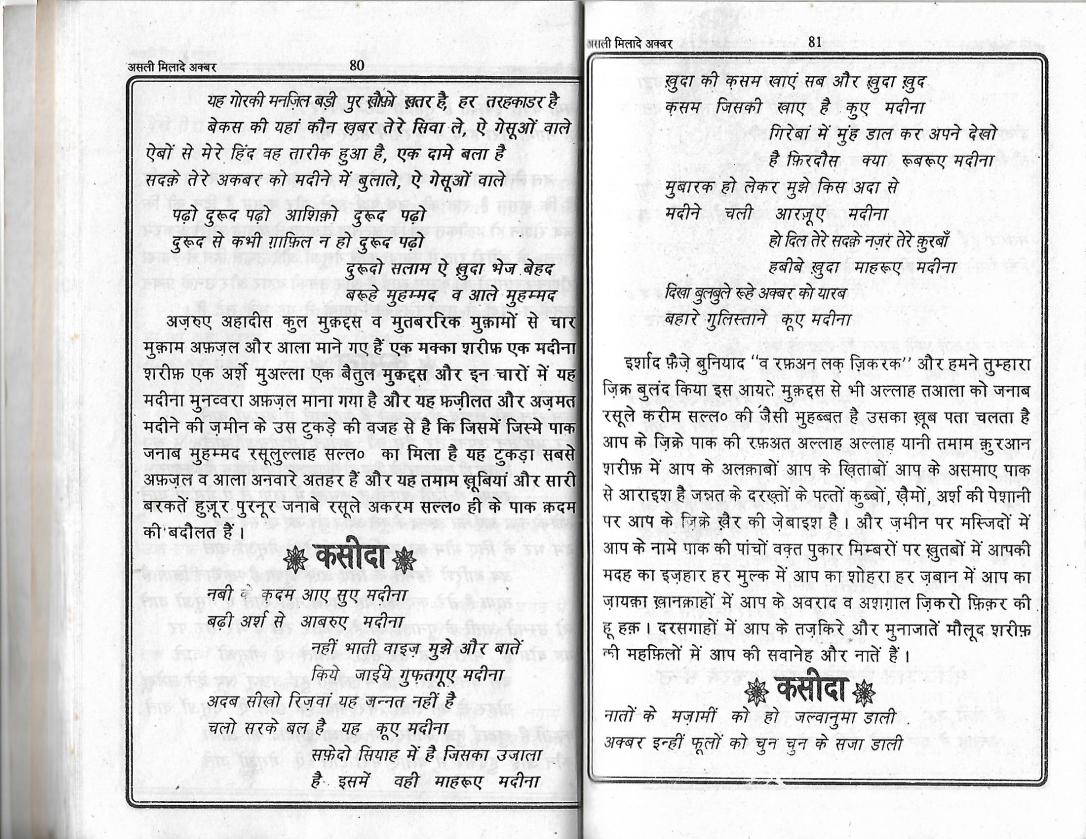 असली मिलादे अक्बर 80
यह गोरकी मनज़िल बड़ी पुर ख़ौफ़ो ख़तर है, हर तरहकाडर है
बेकस की यहां कौन ख़बर तेरे सिवा ले, ऐ गेसूओं वाले
ऐबों से मेरे हिंद वह तारीक हुआ है, एक दामे बला है
सदक़े तेरे अकबर को मदीने में बुलाले, ऐ गेसूओं वाले
पढ़ो दुरूद पढ़ो आशिक़ो दुरूद पढ़ो
दुरूद से कभी ग़ाफ़िल न हो दुरूद पढ़ो
दुरूदो सलाम ऐ ख़ुदा भेज बेहद
बरूहे मुहम्मद व आले मुहम्मद
अज़रुए अहादीस कुल मुक़द्दस व मुतबर्ररिक मुक़ामों से चार
मुक़ाम अफ़ज़ल और आला माने गए हैं एक मक्का शरीफ़ एक मदीना
शरीफ़ एक अर्शे मुअल्ला एक बैतुल मुक़द्दस और इन चारों में यह
मदीना मुनव्वरा अफ़ज़ल माना गया है और यह फ़ज़ीलत और अजमत
मदीने की ज़मीन के उस टुकड़े की वजह से है कि जिसमें जिस्मे पाक
जनाब मुहम्मद रसूलुल्लाह सल्ल० का मिला है यह टुकड़ा सबसे
अफ़ज़ल व आला अनवारे अतहर हैं और यह तमाम ख़ूबियां और सारी
बरकतें हुज़ूर पुरनूर जनाबे रसूले अकरम सल्ल० ही के पाक क़दम
की बदौलत हैं।
कसीदा
नबी के क़दम आए सुए मदीना
बढ़ी अर्श से आबरुए मदीना
नहीं भाती वाइज़ मुझे और बातें
किये जाईये गुफ़तगूए मदीना
अदब सीखो रिज़वां यह जन्नत नहीं है
चलो सरके बल है यह कूए मदीना
सफ़ेदो सियाह में है जिसका उजाला
है इसमें वही माहरूए मदीना
असली मिलादे अक्बर 81
ख़ुदा की क़सम खाएं सब और ख़ुदा ख़ुद
कसम जिसकी खाए है कूए मदीना
गिरेबां में मुंह डाल कर अपने देखो
है फ़िरदौस क्या रूबरूए मदीना
मुबारक हो लेकर मुझे किस अदा से
मदीने चली आरज़ूए मदीना
हो दिल तेरे सदक़े नज़र तेरे क़ुरबाँ
हबीबे ख़ुदा माहरूए मदीना
दिखा बुलबुले रूहे अक्बर को यारब
बहारे गुलिस्ताने कूए मदीना
इर्शाद फ़ैज़े बुनियाद “व रफ़अन लक् ज़िकरक” और हमने तुम्हारा
ज़िक्र बुलंद किया इस आयते मुक़द्दस से भी अल्लाह तआला को जनाब
रसूले करीम सल्ल० की जैसी मुहब्बत है उसका ख़ूब पता चलता है
आप के ज़िक्रे पाक की रफ़अत अल्लाह अल्लाह यानी तमाम क़ुरआन
शरीफ़ में आप के अलक़ाबों आप के ख़िताबों आप के असमाए पाक
से आराइश है जन्नत के दरख़्तों के पत्तों कुब्बों, ख़ैमों, अर्श की पेशानी
पर आप के ज़िक्रे ख़ैर की ज़ेबाइश है। और ज़मीन पर मस्जिदों में
आप के नामे पाक की पांचों वक़्त पुकार मिम्बरों पर ख़ुतबों में आपकी
मदह का इज़हार हर मुल्क में आप का शोहरा हर ज़बान में आप का
ज़ायक़ा ख़ानक़ाहों में आप के अवराद व अशग़ाल ज़िकरो फ़िक़र की
हू हक़। दरसगाहों में आप के तज़किरे और मुनाजातें मौलूद शरीफ़
की महफ़िलों में आप की सवानेह और नातें हैं।
कसीदा
नातों के मज़ामीं को हो जल्वानुमा डाली
अक्बर इन्हीं फूलों को चुन चुन के सजा डाली